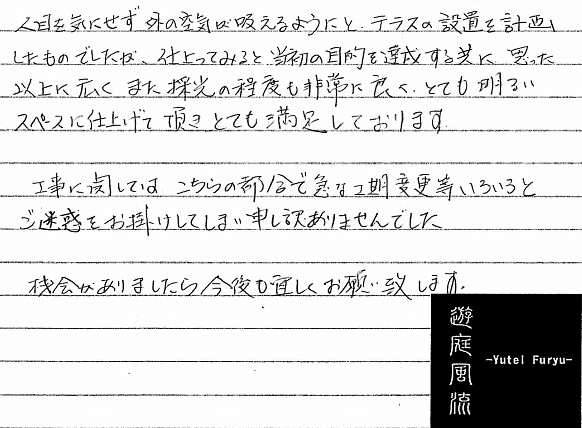 人目を気にせず外の空気が吸えるようにと、テラスの設置を計画
したものでしたが、仕上ってみると当初の目的を達成する共に、思った
以上に広く また採光の程度も非常に良く、とても明るい
スペースに仕上げて頂きとても満足しております
工事に関しては こちらの都合で急な工期変更等いろいろと
ご迷惑をお掛けしてしまい申し訳ありませんでした
機会がありましたら今後も宜しくお願い致します。
遊庭風流
-Yutei Furyu-